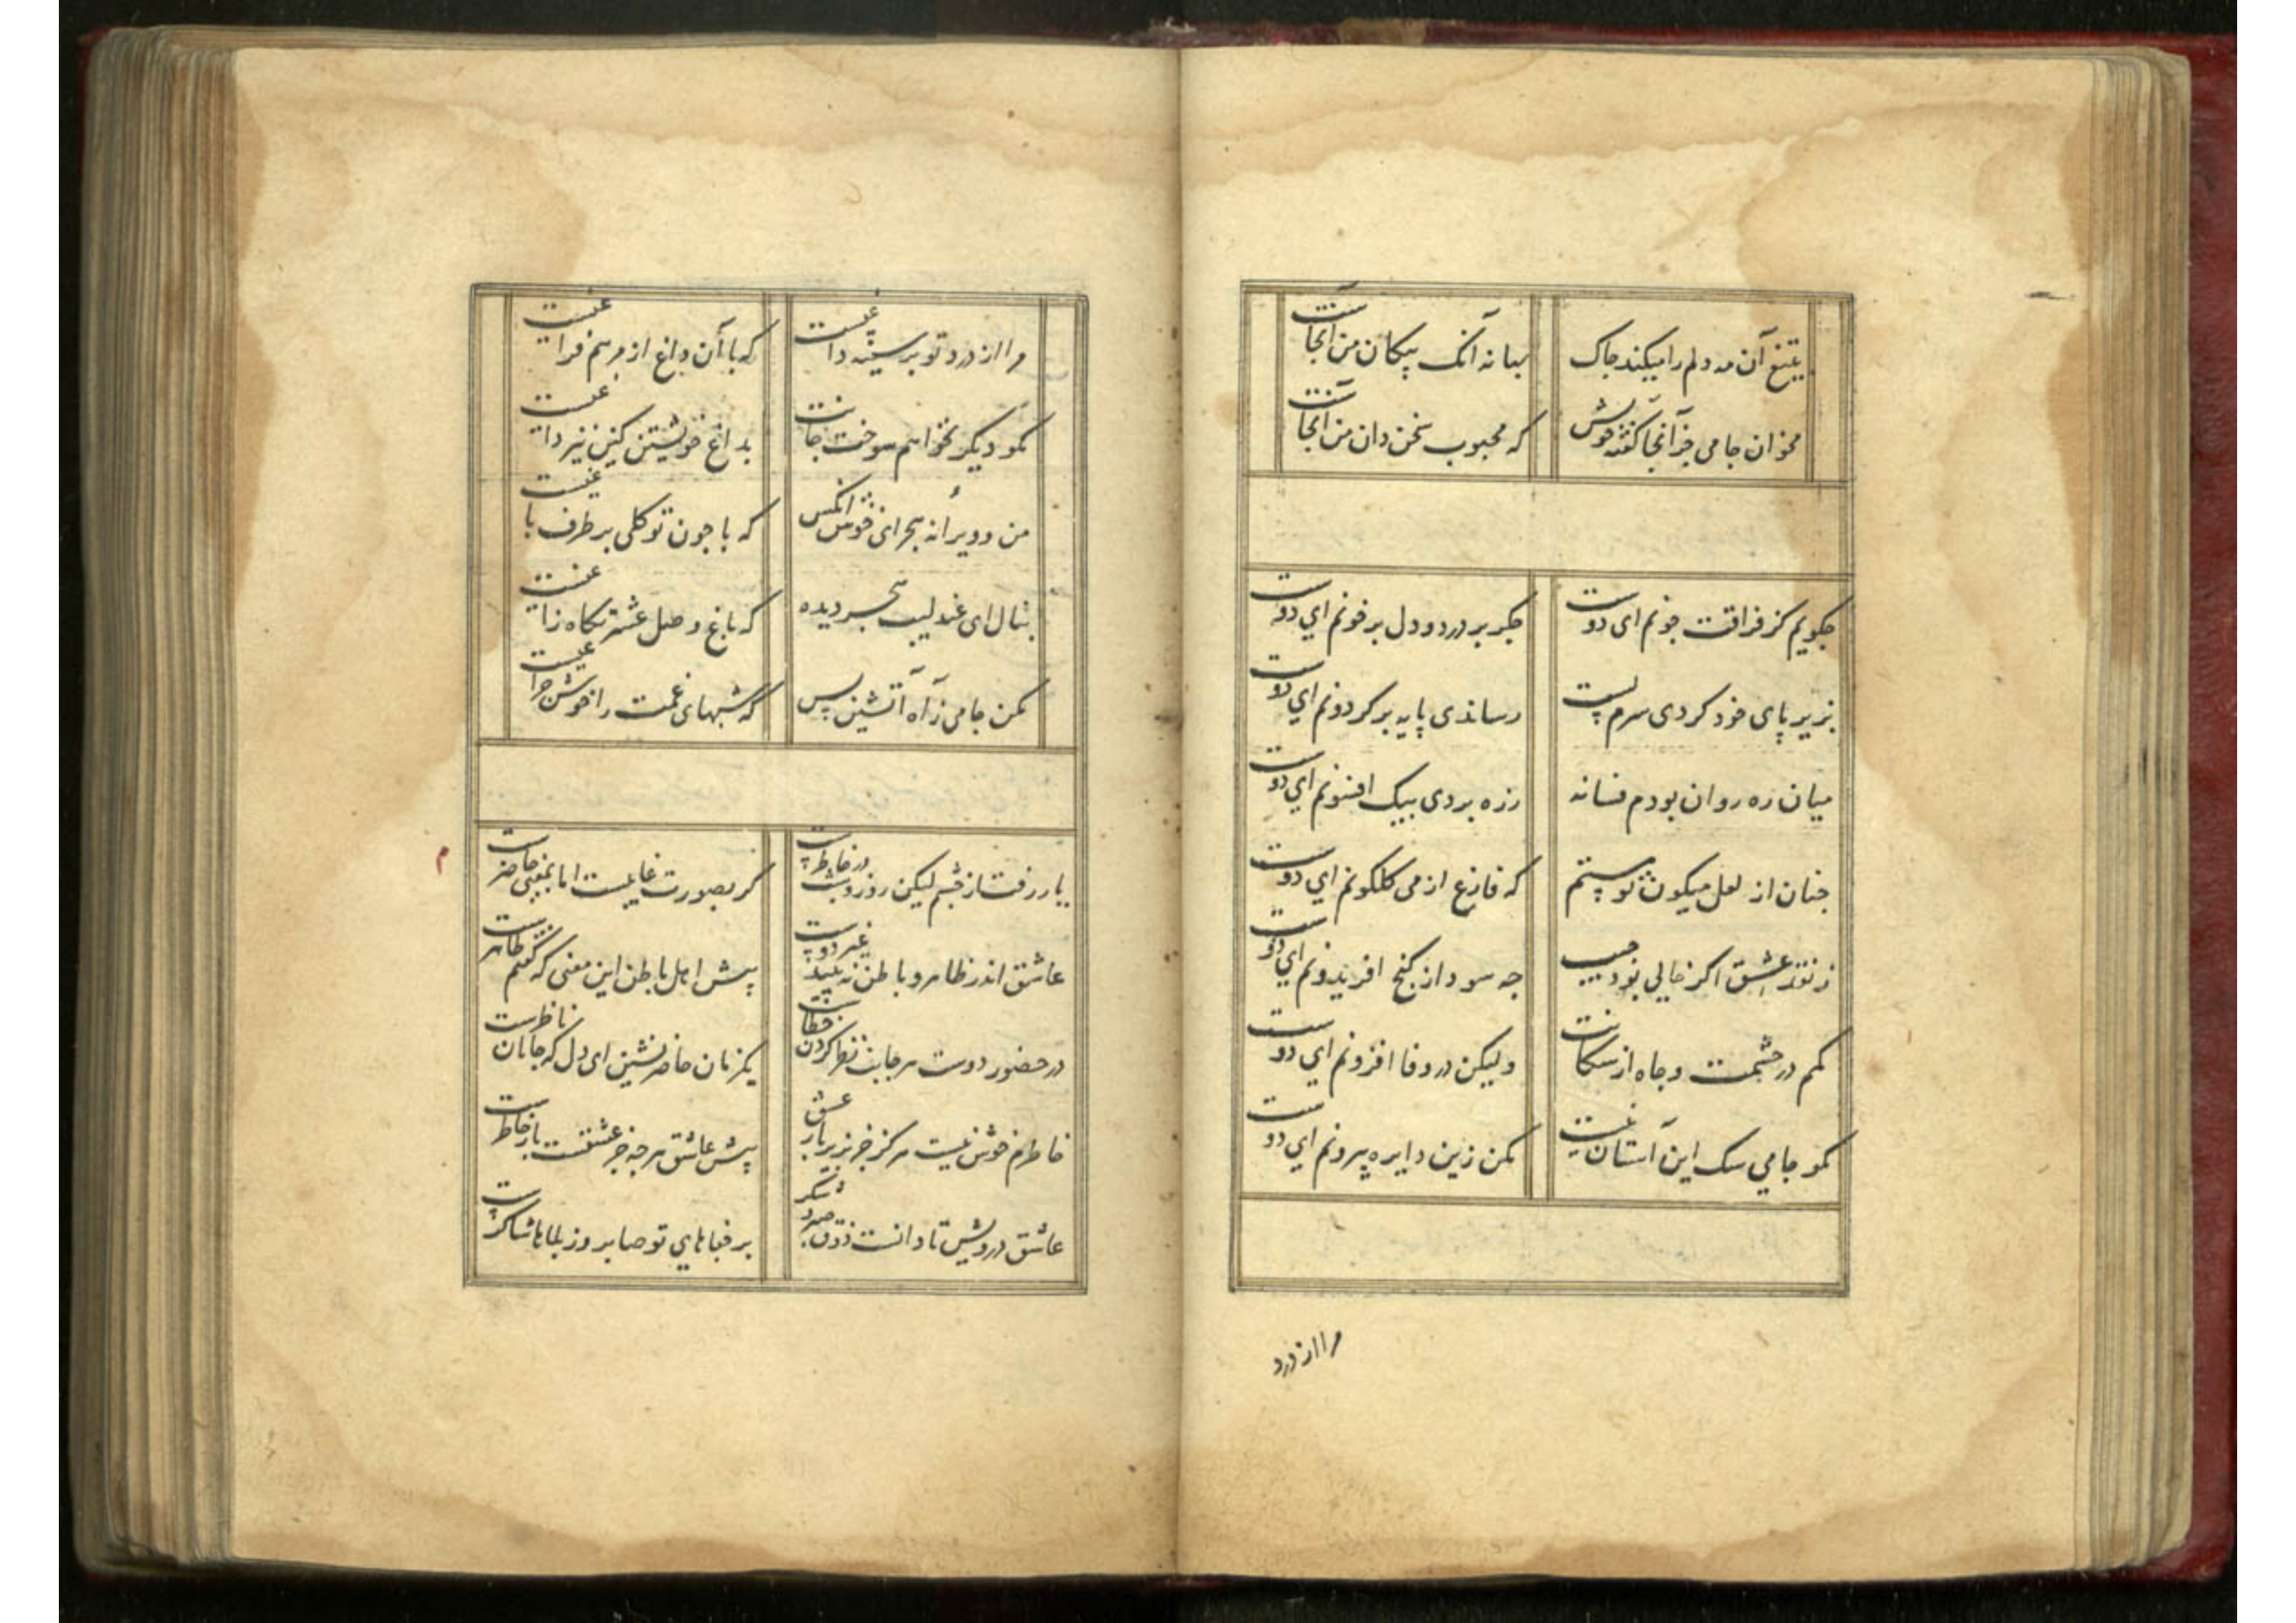 بتیغ آن مه دلم را میکند چاک بهانه آنک پیکان من آنجاست
مخوان جامی جز آنجا گفته خویش که محبوب سخن دان من آنجاست
چگویم کز فراقت چونم ای دوست جگر پر درد و دل پر خونم ای دوست
بزیر پای خود کردی سرم پست رساندی پایه بر گردونم ای دوست
میان ره روان بودم فسانه زره بردی بیک افسونم ای دوست
چنان از لعل میگون تو مستم که فارغ از می گلگونم ای دوست
ز نقد عشق اگر خالی بود جیب چه سود از گنج افریدونم ای دوست
کمم در حشمت و جاه از سگانت ولیکن در وفا افزونم ای دوست
مگو جامی سگ این آستان نیست مکن زین دایره بیرونم ای دوست
مرا از درد
مرا از درد تو بر سینه داغیست که با آن داغ از مرهم فراغیست
مگو دیگر نخواهم سوخت جانت بداغ خویشتن کین نیز داغیست
من و ویرانه هجرای خوش آنکس که با چون تو گلی بر طرف باغیست
بنال ای عندلیب هجر دیده که باغ وصل عشرتگاه زاغیست
مکن جامی ز آه آتشین بس که شبهای غمت را خوش چراغیست
یار رفت از چشم لیکن روز و شب در خاطرست گر بصورت غایبست اما بمعنی حاضرست
عاشق اندر ظاهر و باطن نبیند غیر دوست پیش اهل باطن این معنی که گفتم ظاهرست
در حضور دوست هر جانب نظر کردن خطاست یکزمان حاضر نشین ای دل که جانان ناظرست
خاطرم خوش نیست هرگز جز بزیر بار عشق پیش عاشق هر چه جز عشقست بار خاطرست
عاشق درویش تا دانست ذوق صبر و شکر بر جفاهای تو صابر وز بلاها شاکرست